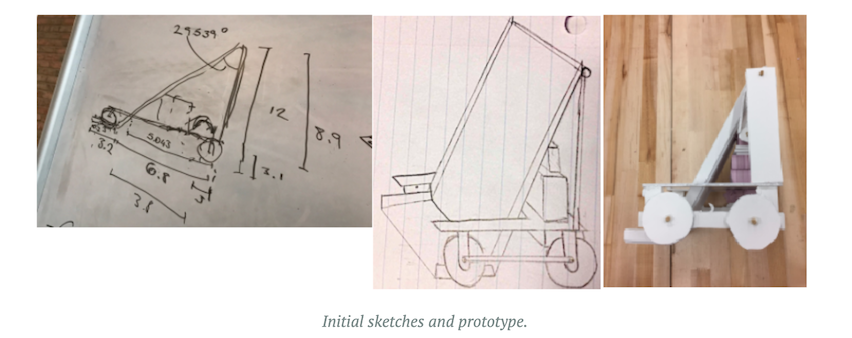 29.539°
12
8.9
3.1
5.043
3.2
6.8
3.8
Initial sketches and prototype.